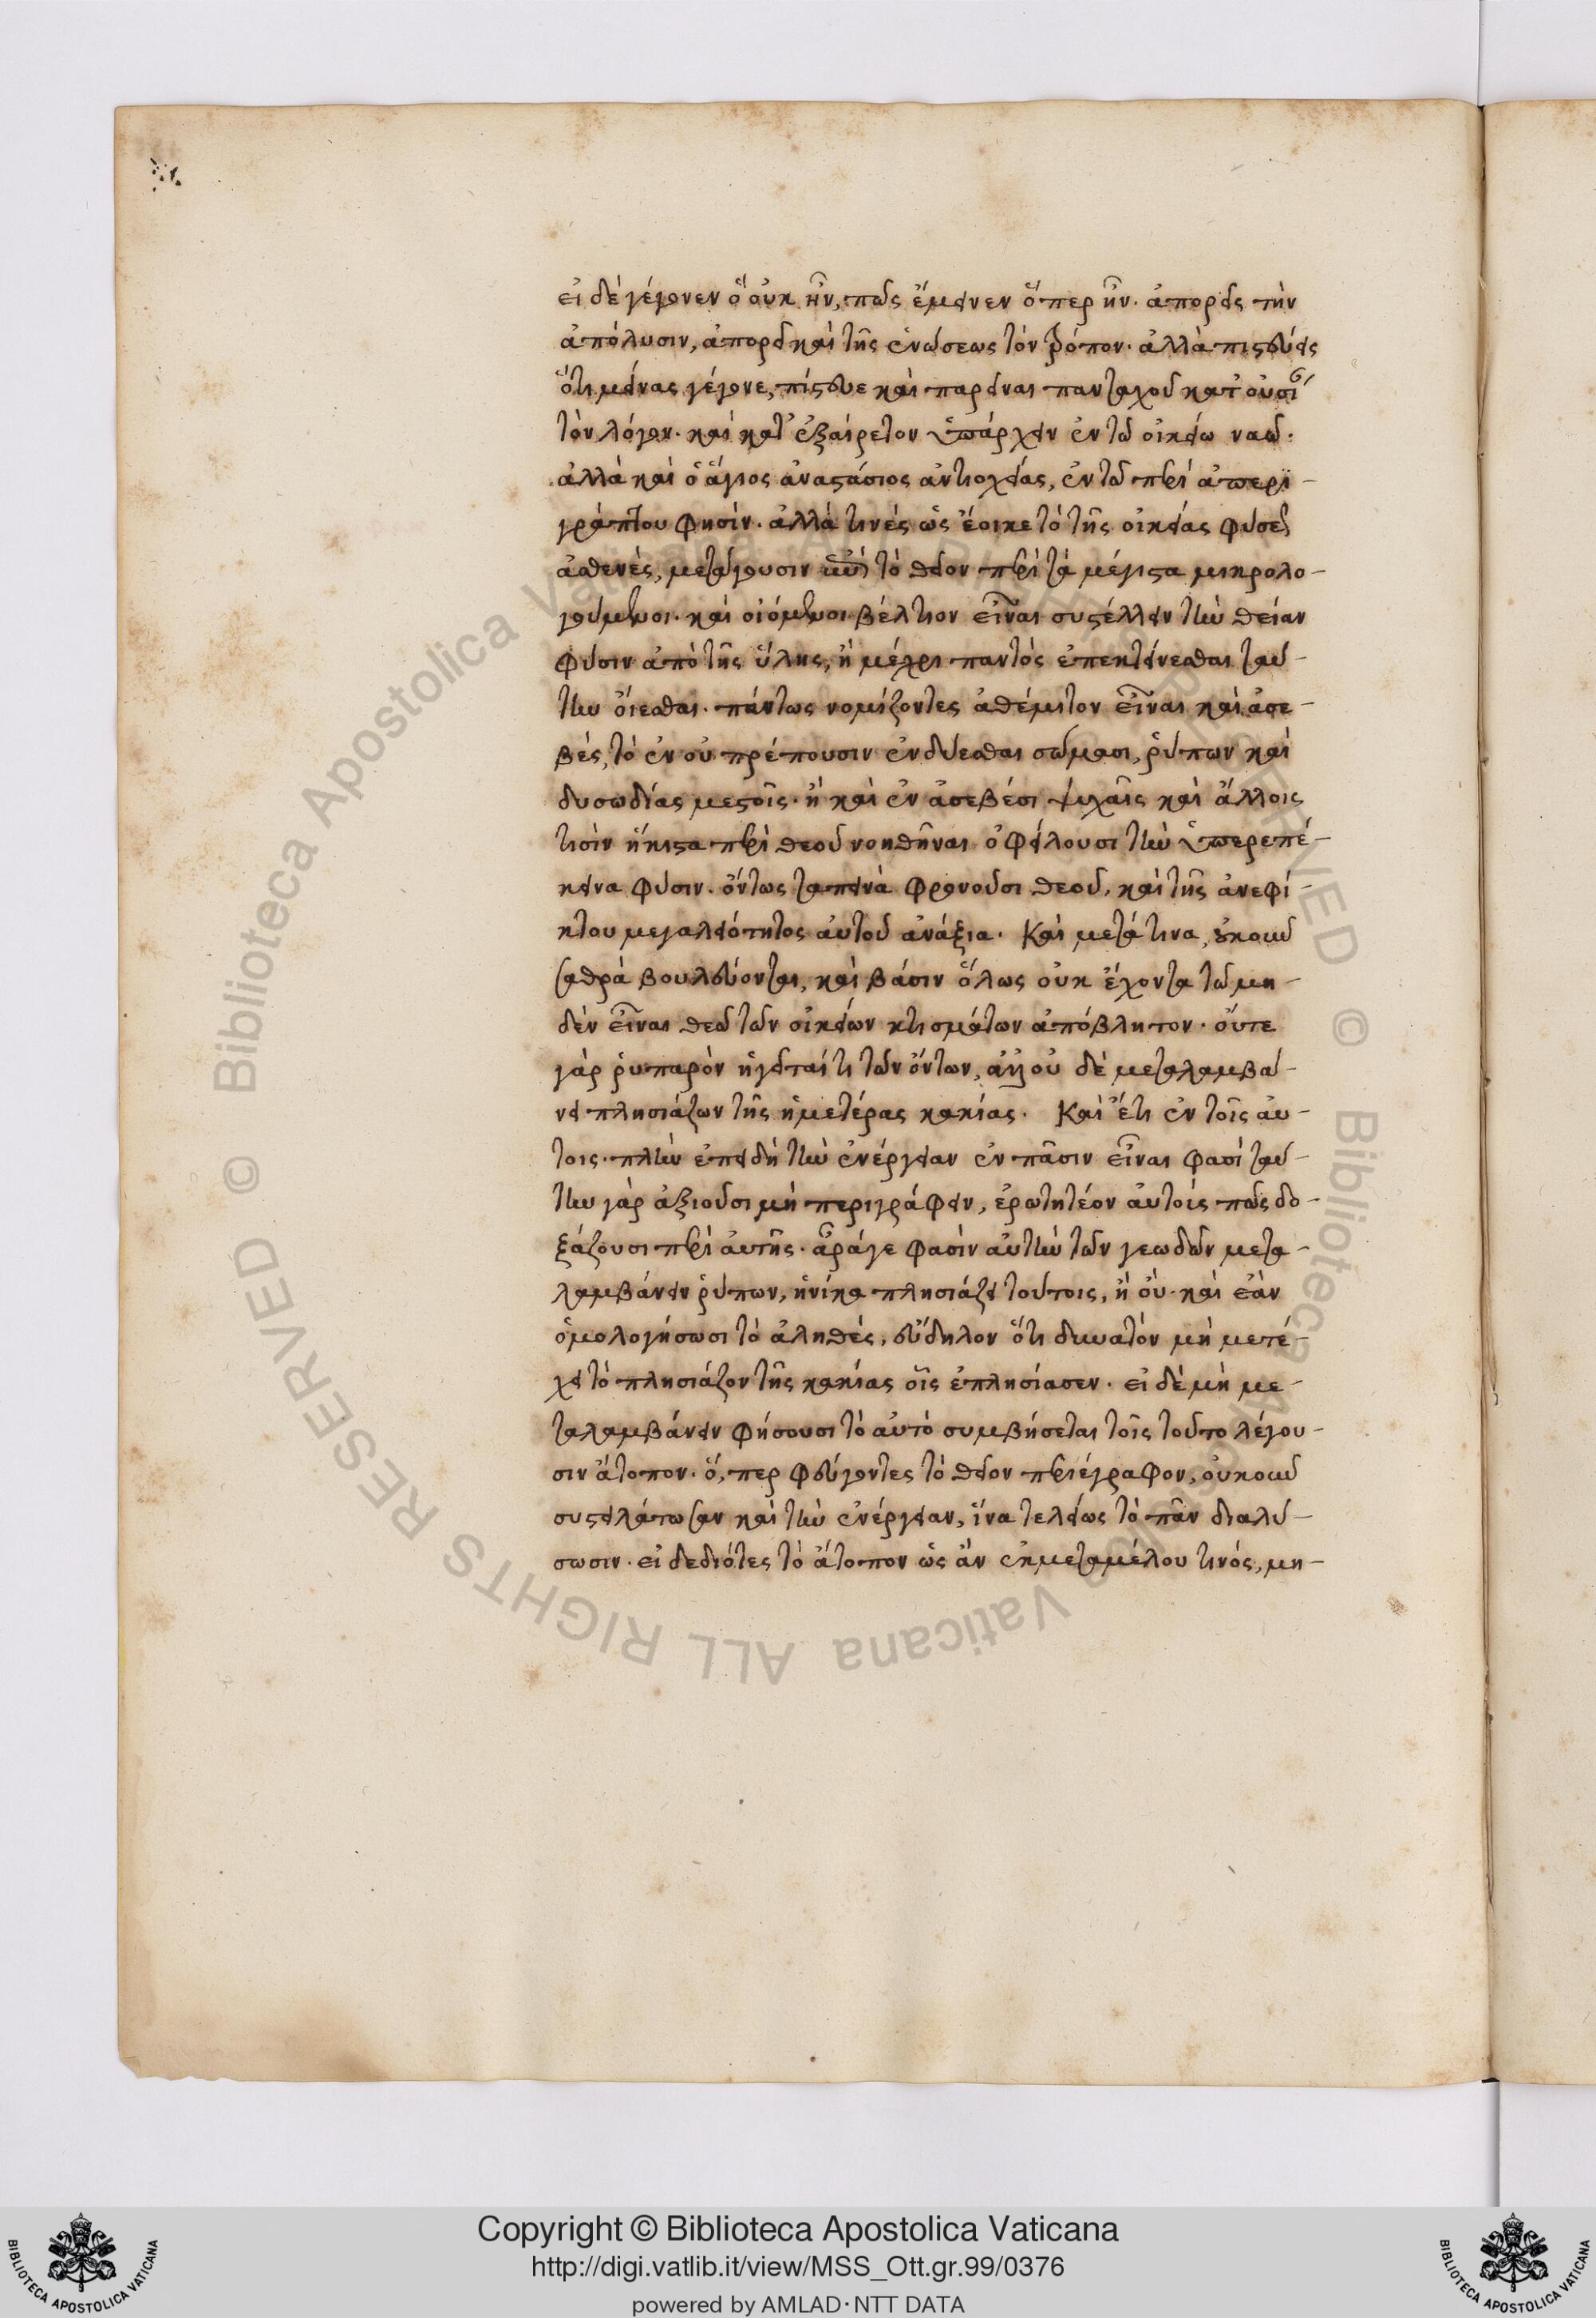 εἰ δὲ γέγονεν ὃ οὐκ ἦν, πῶς ἔμεινεν ὅπερ ἦν. ἀπορεῖς τὴν
ἀπόλυσιν, ἀπορεῖ καὶ τῆς ἑνώσεως τὸν τρόπον. ἀλλὰ πιστεύεις
ὅτι μείνας γέγονε, πίστευε καὶ παρεῖναι πανταχοῦ κατ' οὐσί
τὸν λόγον. καὶ κατ' ἐξαίρετον ὑπάρχειν ἐν τῶ οἰκείω ναῶ.
ἀλλὰ καὶ ὁ ἅγιος ἀναστάσιος ἀντιοχείας, ἐν τῶ περὶ ἀπερι-
γράπτου φησίν. ἀλλά τινές ὡς ἔοικε τὸ τῆς οἰκείας φύσεως
ἀσθενὲς, μετάγουσιν τὸ θεῖον περὶ τὰ μέγιστα μικρολο-
γούμενοι. καὶ οἰόμενοι βέλτιον εἶναι συστέλλειν τὴν θείαν
φύσιν ἀπὸ τῆς ὕλης, ἢ μέχρι παντὸς ἐπεκτείνεσθαι ταύ-
την οἴεσθαι. πάντως νομίζοντες ἀθέμιτον εἶναι καὶ ἀσε-
βές, τὸ ἐν οὐ πρέπουσιν ἐνδύεσθαι σώμασι, ῥύπων καὶ
δυσωδίας μεστοῖς. ἢ καὶ ἐν ἀσεβέσι ψυχαῖς καὶ ἄλλοις
τισὶν ἥκιστα περὶ θεοῦ νοηθῆναι ὀφείλουσι τὴν ὑπερεπέ-
κεινα φύσιν. ὄντως ταπεινὰ φρονοῦσι θεοῦ, καὶ τῆς ἀνεφί-
κτου μεγαλειότητος αὐτοῦ ἀνάξια. Καὶ μετά τινα, οὐκοῦν
σαθρὰ βουλεύονται, καὶ βάσιν ὅλως οὐκ ἔχοντα τῶ μη-
δὲν εἶναι θεῶ τῶν οἰκείων κτισμάτων ἀπόβλητον. οὔτε
γὰρ ῥυπαρὸν ἡγεῖταί τι τῶν ὄντων, ἀλλ' οὐδὲ μεταλαμβά-
νει πλησιάζων τῆς ἡμετέρας κακίας. Καὶ ἔτι ἐν τοῖς αὐ-
τοις. πλὴν ἐπειδὴ τὴν ἐνέργειαν ἐν πᾶσιν εἶναι φασὶ ταύ-
την γὰρ ἀξιοῦσι μὴ περιγράφειν, ἐρωτητέον αὐτοὶς πῶς δο-
ξάζουσι περὶ αὐτῆς. ἆράγε φασὶν αὐτὴν τῶν γεωδῶν μετα-
λαμβάνειν ῥύπων, ἡνίκα πλησιάζει τούτοις, ἢ οὔ. καὶ ἐὰν
ὁμολογήσωσι τὸ ἀληθές, εὔδηλον ὅτι δυνατὸν μὴ μετέ-
χει τὸ πλησιάζον τῆς κακίας οἷς ἐπλησίασεν. εἰ δὲ μὴ με-
ταλαμβάνειν φήσουσι τὸ αὐτὸ συμβήσεται τοῖς τοῦτο λέγου-
σιν ἄτοπον. ὅ, περ φεύγοντες τὸ θεῖον περιέγραφον, οὐκοῦν
συστειλάτωσαν καὶ τὴν ἐνέργειαν, ἵνα τελείως τὸ πᾶν διαλύ-
σωσιν. εἰ δεδιότες τὸ ἄτοπον ὡς ἂν ἐκ μεταμέλου τινός, μη-
Copyright © Biblioteca Apostolica Vaticana
http://digi.vatlib.it/view/MSS_Ott.gr.99/0376
powered by AMLAD·NTT DATA
© Biblioteca Apostolica Vaticana ALL RIGHTS RESERVED
BIBLIOTECA APOSTOLICA VATICANA
BIBLIOTECA APOSTOLICA VATICANA